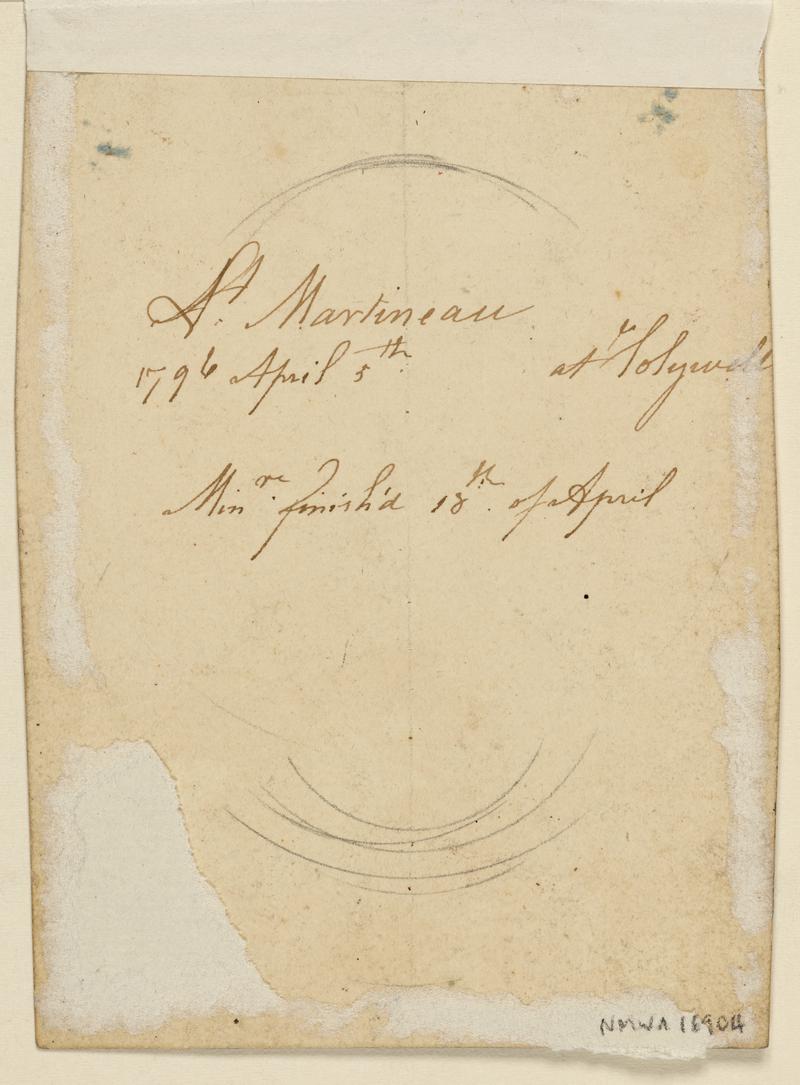 St. Martineau
1796 April 5th at Holywell
Minre finish'd 18th. of April
NMWA 16904